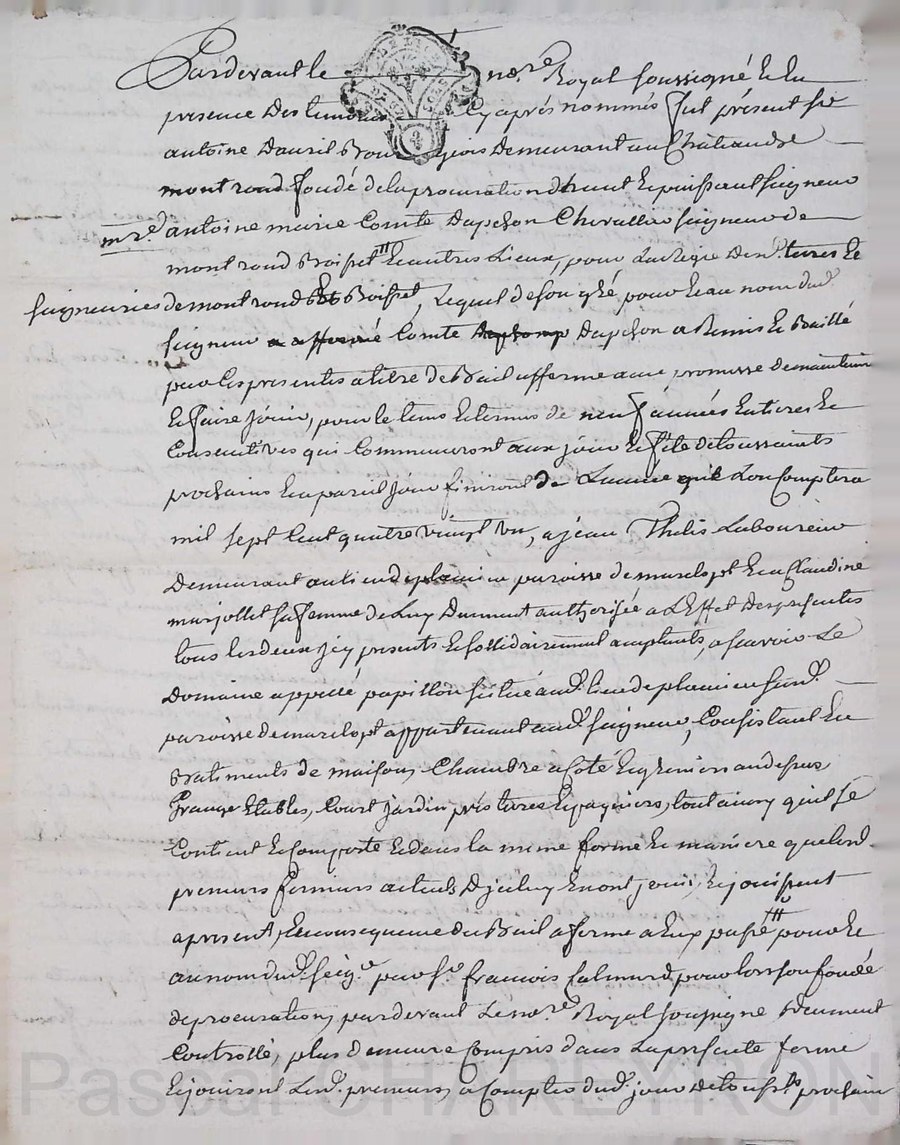 Pardevant le no.re Royal soussigné & en
presence des temoins cy après nommés fut présent sr
antoine Dauril Bourgeois demeurant au Châteaude
montrond fondé dela procuration d'haut & puissant seigneur
mre. antoine marie Comte Dapchon Chevallier seigneur de
montrond Boisset & autres Lieux, pour La Regie des d. terres &
seigneuries de montrond & Boisset, Lequel de son gré pour & au nom dud.
seigneur a affermé Comte Dapchon Dapchon a Remis & Baillé
par les presentes a titre de Bail afferme avec promesse de maintenir
& faire joüir, pour le tems & termes de neuf années Entieres &
Consecutives qui Commenceront aux jour & fête de toussaints
prochains & a pareil jour finiront de L'année que Lon Comptera
mil sept Cent quatre vingt un, a jean Thelis Laboureur
Demeurant au lieu de plancieu paroisse de marclopt & a Claudine
marjollet sa femme de Luy Duement authorisée a L'Effet des presentes
tous les deux jcy presents & sollidairement acceptants, a scavoir Le
Domaine appellé papillon scitué aud. lieu de plancieu susd.
paroisse de marclopt appartenant aud. seigneur, Consistant En
Batiments de maison, Chambre a Coté & grenier au dessus
Grange Etables, Court jardin prés terres & paquiers, tout ainsy qu'il se
Contient & Comporte & dans la meme forme & maniere que lesd.
preneurs fermiers actuels D'jceluy En ont joui, & jouissent
apresent, En consequence du Bail a ferme a Eux passé pour &
au nom dud. seig.r par sr. francois Calmard pour lors son fondé
de procuration, pardevant Le no.re Royal soussigné Duement
Controllé, plus demeure Compris dans La presente ferme
& jouiront Lesd. preneurs, a Compter dud. jour de touss.ts prochain
Pascal CHAREYRON